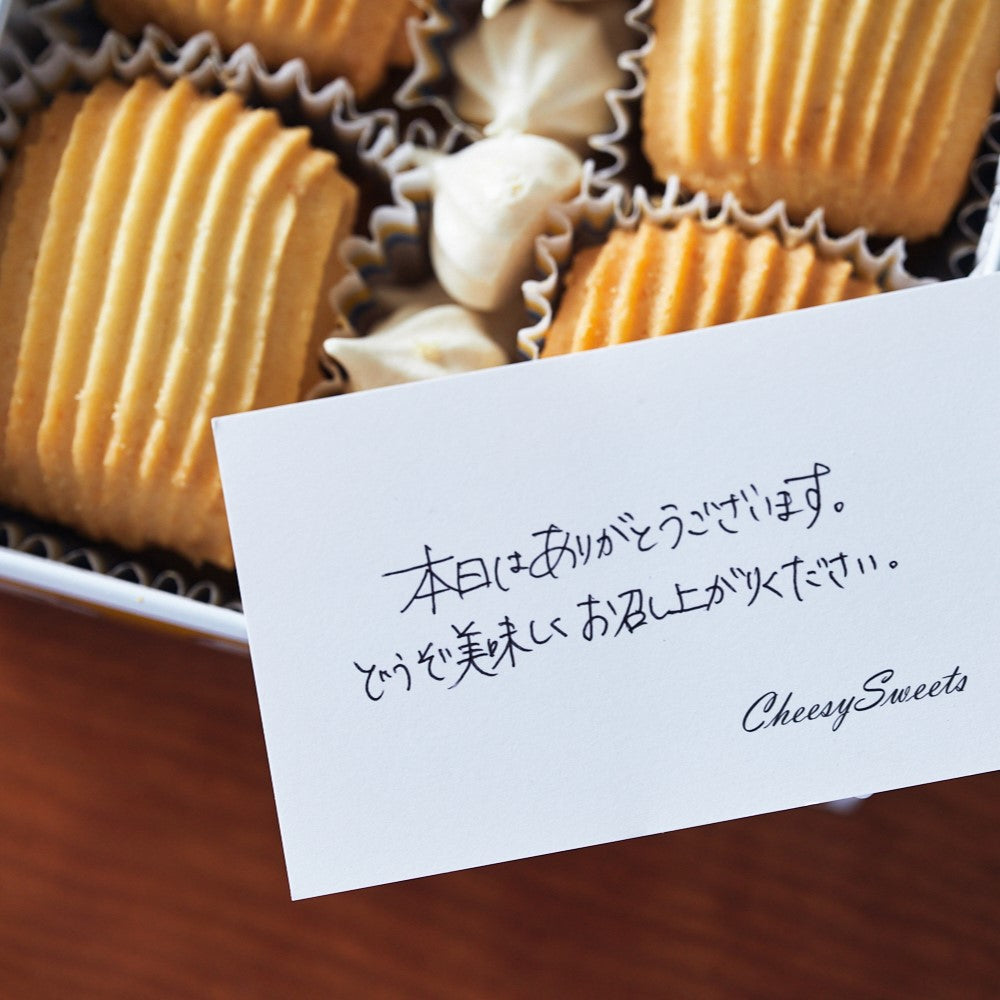 本日はありがとうございます。
どうぞ美味しくお召し上がりください。
CheesySweets